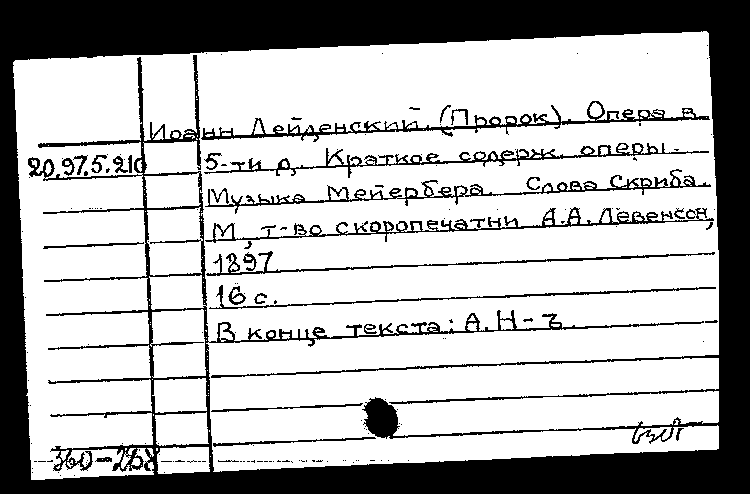 Иоанн Лейденский. (Пророк). Опера в
20.97.5.210 5-ти д. Краткое содерж. оперы.
Музыка Мейербера. Слова Скриба.
М., т-во скоропечатни А.А. Левенсон,
1897
16 с.
В конце текста: А.Н-ъ.
360-268